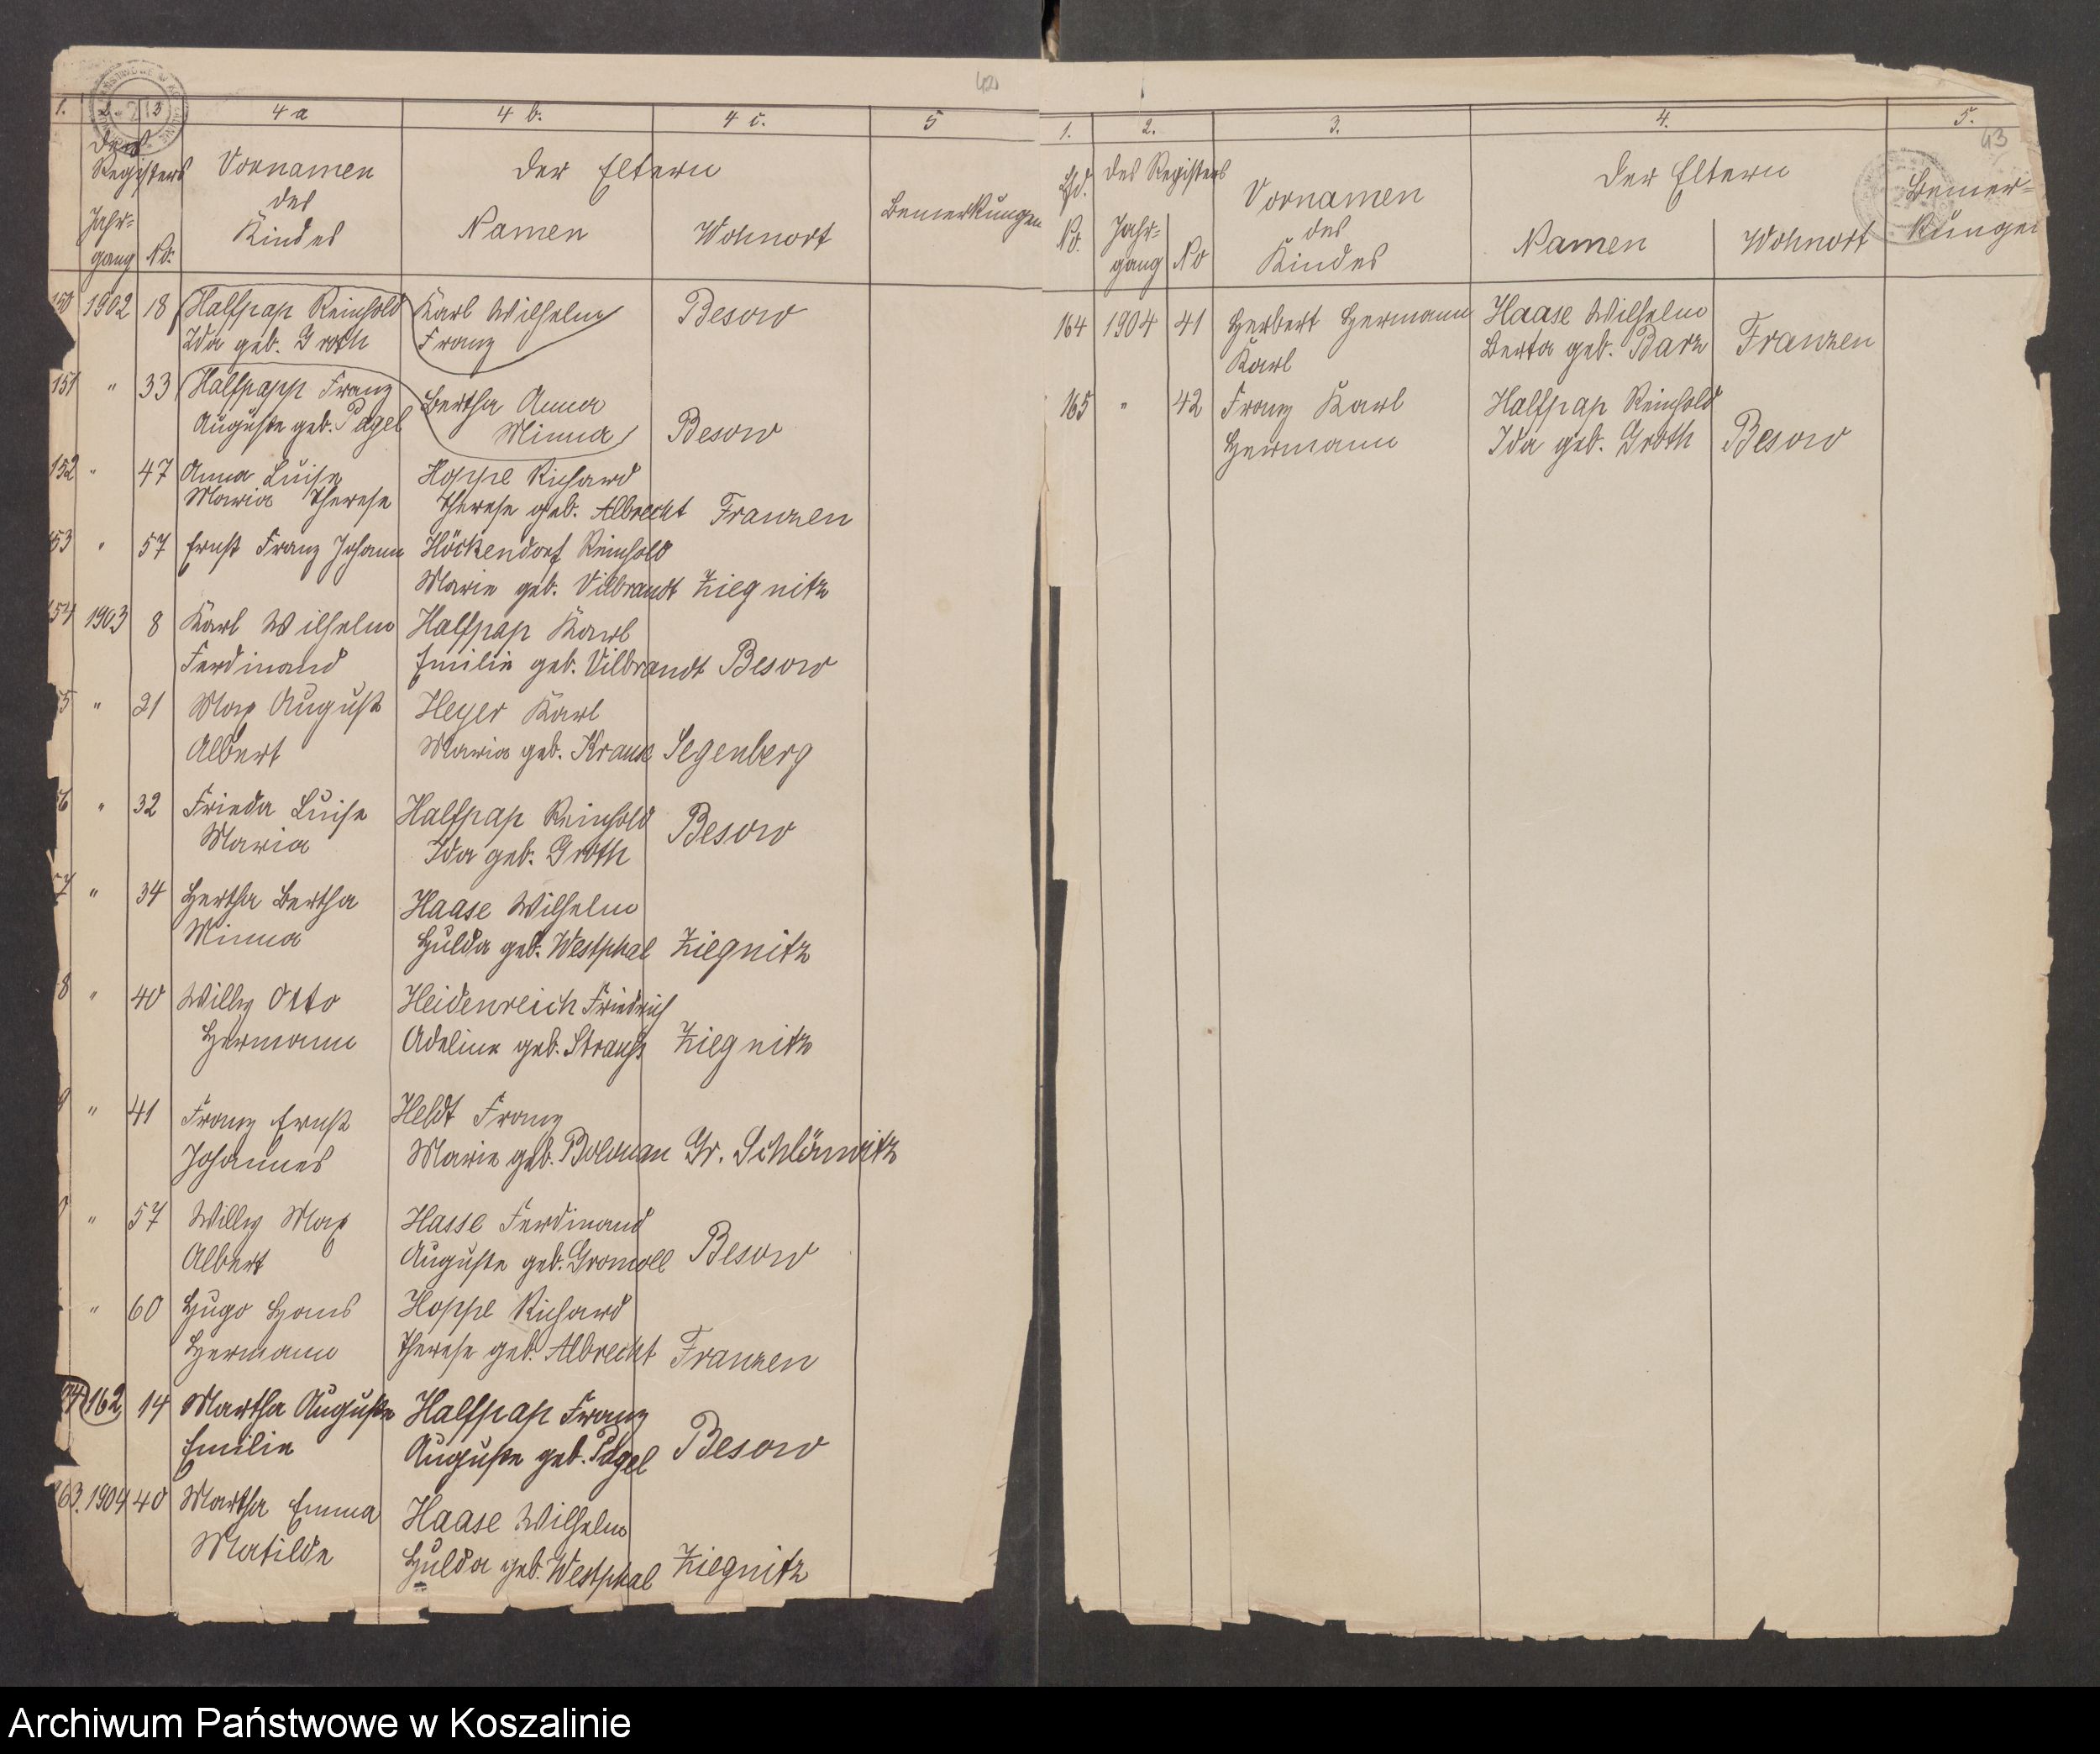 42
1. 2 3 4 a 4 b. 4 c. 5
Des
Registers Vornamen der Eltern
des
Jahr- Kindes Namen Wohnort Bemerkungen
gang No.
150 1902 18 Halfpap Reinhold Karl Wilhelm Besow
Ida geb. Groth Franz
151 " 33 Halfpapp Franz Bertha Anna
Auguste geb. Pagel Minna Besow
152 " 47 Anna Luise Hoppe Richard
Maria Therese Therese geb. Albrecht Franzen
53 " 57 Ernst Franz Johann Höckendorf Reinhold
Marie geb. Vilbrandt Ziegnitz
54 1903 8 Karl Wilhelm Halfpap Karl
Ferdinand Emilie geb. Vilbrandt Besow
55 " 21 Max August Heyer Karl
Albert Maria geb. Krause Segenberg
56 " 32 Frieda Luise Halfpap Reinhold Besow
Maria Ida geb. Groth
57 " 34 Hertha Bertha Haase Wilhelm
Minna Hulda geb. Westphal Ziegnitz
8 " 40 Willy Otto Heidenreich Friedrich
Hermann Adeline geb. Strauß Ziegnitz
9 " 41 Franz Ernst Heldt Franz
Johannes Marie geb. Gr. Schlönwitz
" 57 Willy Max Hasse Ferdinand
Albert Auguste geb. Gromoll Besow
" 60 Hugo Hans Hoppe Richard
Hermann Therese geb. Albrecht Franzen
162 14 Martha Auguste Halfpap Franz
Emilie Auguste geb. Pagel Besow
163. 1904 40 Martha Emma Haase Wilhelm
Matilde Hulda geb. Westphal Ziegnitz
43
1. 2. 3. 4. 5.
Lfd. des Registers Vornamen der Eltern Bemer-
No. Jahr- des Namen Wohnort kungen
gang No Kindes
164 1904 41 Herbert Hermann Haase Wilhelm
Karl Berta geb. Barz Franzen
165 " 42 Franz Karl Halfpap Reinhold
Hermann Ida geb. Groth Besow
Archiwum Państwowe w Koszalinie